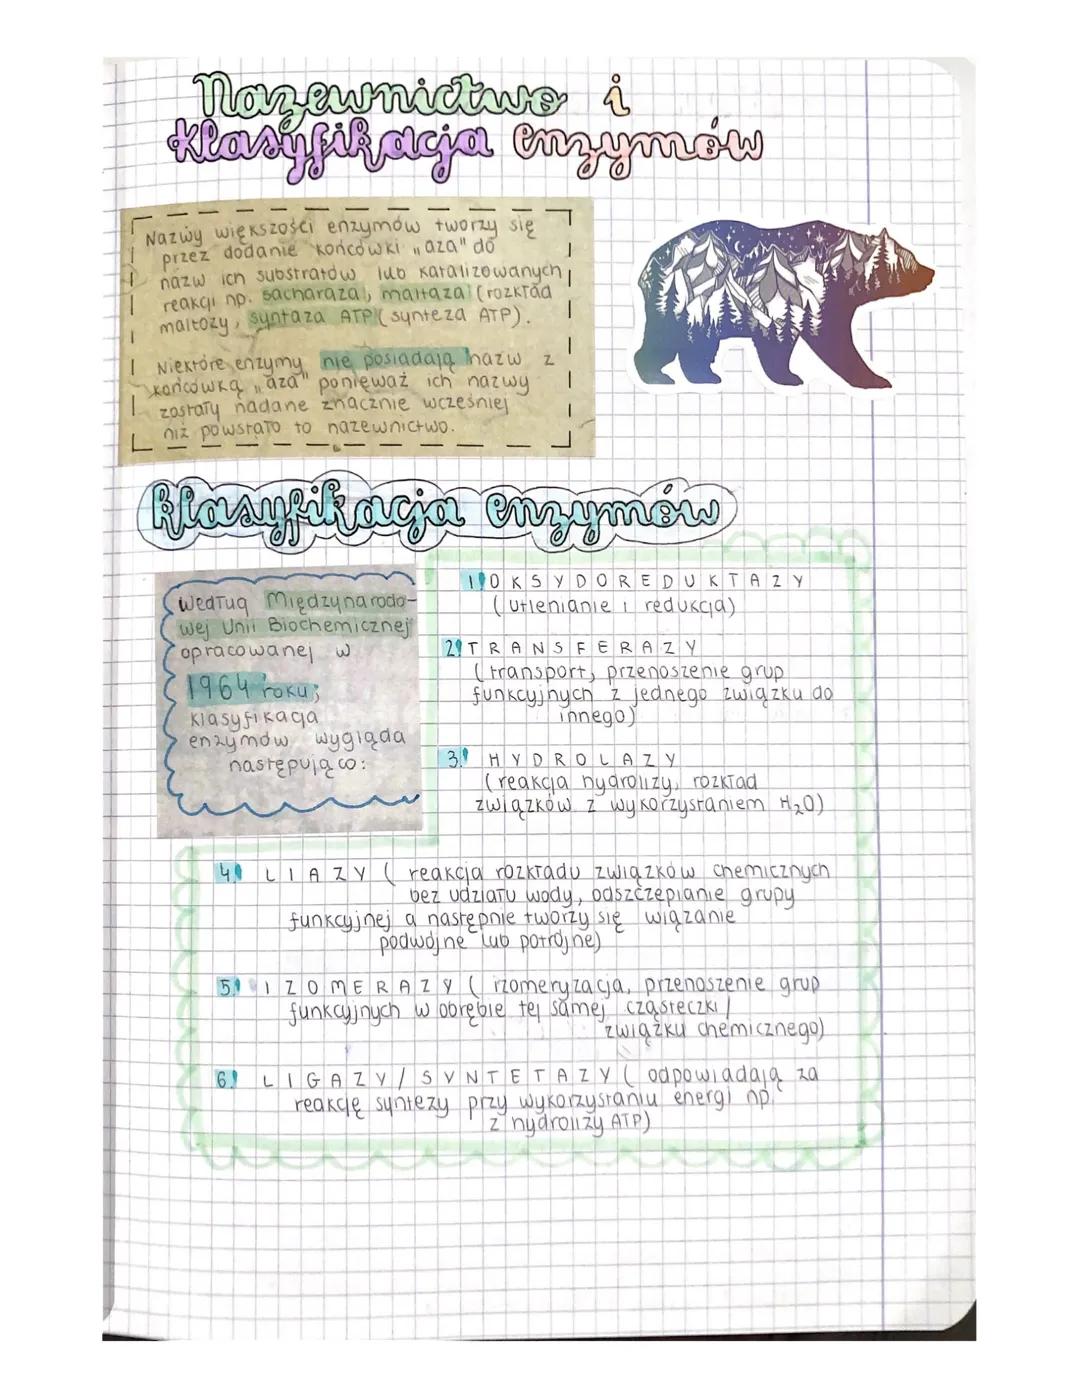 Nazewnictwo i
klasyfikacja enzymów
Nazwy większości enzymów tworzy się
przez dodanie końcówki „aza" do
nazw ich substratów lub katalizowanych
reakcji np. sacharaza, maltaza (rozkład
maltozy, syntaza ATP (synteza ATP).
Niektóre enzymy nie posiadają nazw z
końcówką „aza" ponieważ ich nazwy
zostały nadane znacznie wcześniej
niż powstało to nazewnictwo.
klasyfikacja enzymów
według Międzynarodo-
wej Unii Biochemicznej
opracowanej w
1964 roku;
klasyfikacja
enzymów wygląda
następująco:
1. OKSYDOREDUKTAZY
(utlenianie i redukcja)
2. TRANSFERAZY
(transport, przenoszenie grup
funkcyjnych z jednego związku do
innego)
3. HYDROLAZY
(reakcja hydrolizy, rozkład
związków z wykorzystaniem H₂O)
4. LIAZY (reakcja rozkładu związków chemicznych
bez udziału wody, odszczepianie grupy
funkcyjnej a następnie tworzy się wiązanie
podwójne lub potrójne)
5. IZOMERAZY (izomeryzacja, przenoszenie grup
funkcyjnych w obrębie tej samej cząsteczki /
związku chemicznego)
6. LIGAZY/SYNTETAZY (odpowiadają za
reakcję syntezy przy wykorzystaniu energi np.
z hydrolizy ATP)